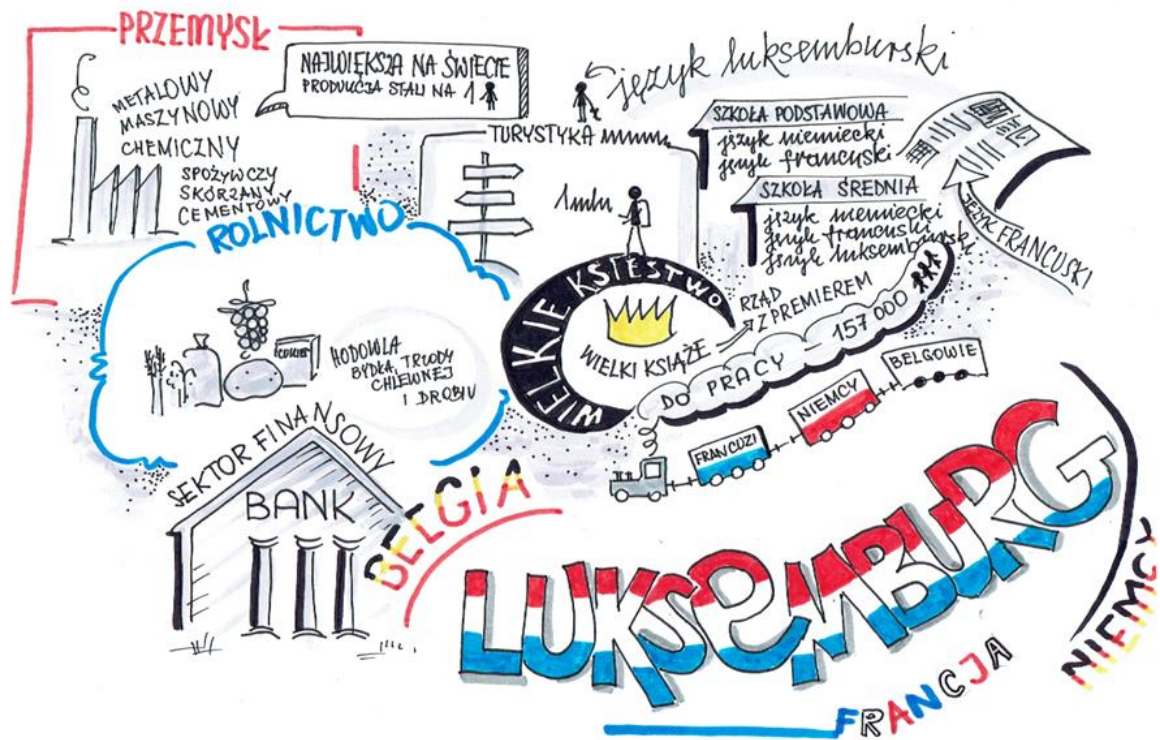 PRZEMYSŁ
METALOWY
MASZYNOWY
CHEMICZNY
SPOŻYWCZY
SKÓRZANY
CEMENTOWY
NAJWIĘKSZA NA ŚWIECIE
PRODUKCJA STALI NA 1
język luksemburski
TURYSTYKA
1 mln
SZKOŁA PODSTAWOWA
język niemiecki
język francuski
SZKOŁA ŚREDNIA
język niemiecki
język francuski
język luksemburski
JĘZYK FRANCUSKI
ROLNICTWO
CUKIER
HODOWLA
BYDŁA, TRZODY
CHLEWNEJ
I DROBIU
WIELKIE KSIĘSTWO
WIELKI KSIĄŻE
RZĄD
Z PREMIEREM
DO PRACY - 157 000
FRANCUZI
NIEMCY
BELGOWIE
SEKTOR FINANSOWY
BANK
BELGIA
LUKSEMBURG
FRANCJA
NIEMCY